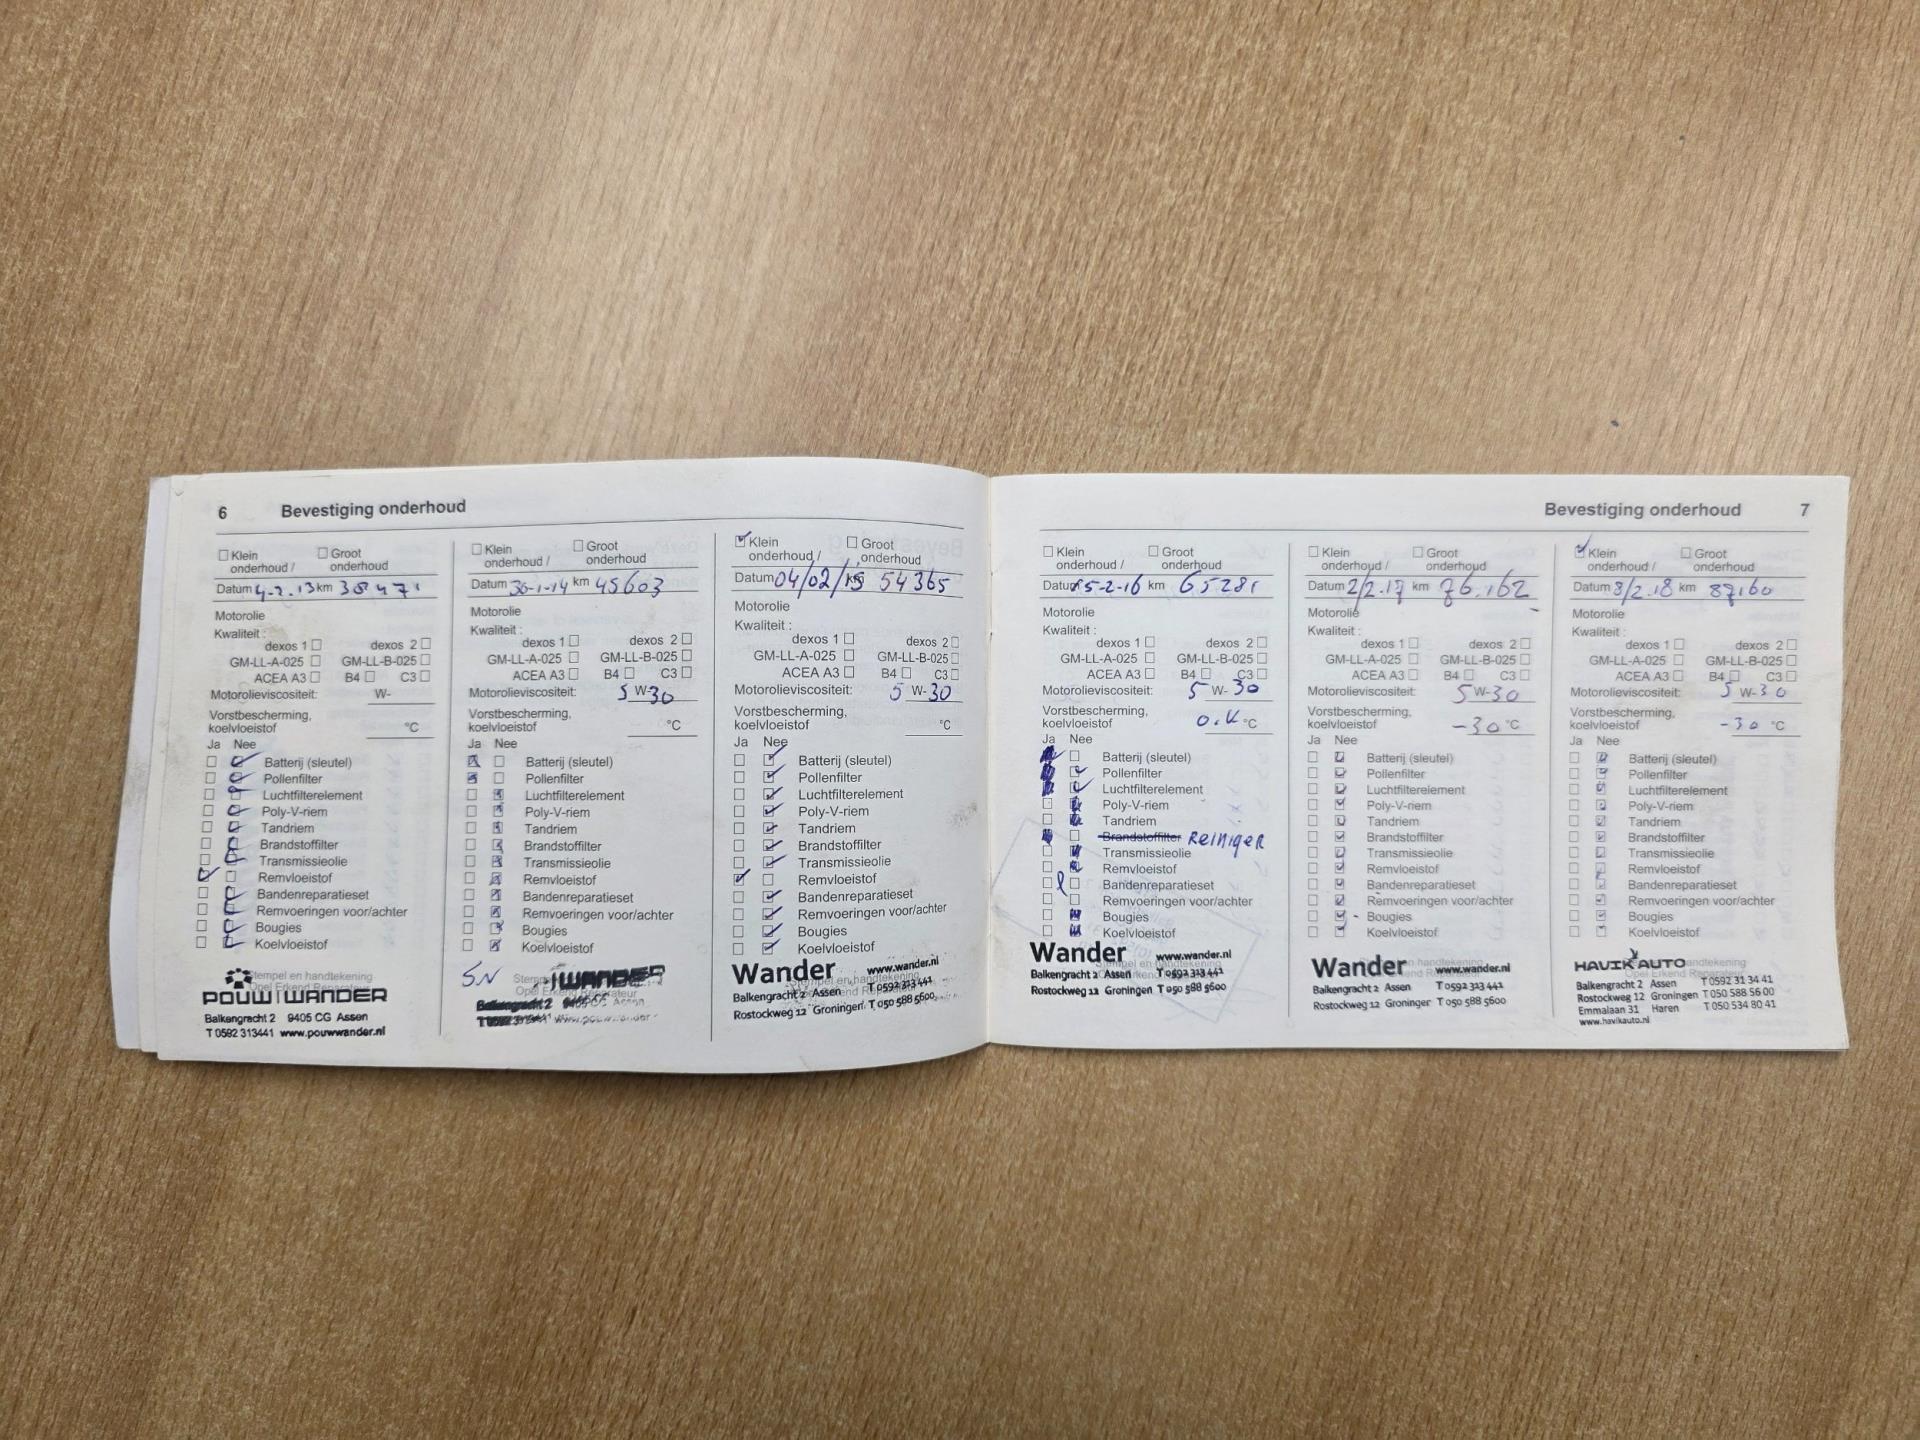 6 Bevestiging onderhoud
Klein onderhoud / Groot onderhoud
Datum 4-2-13 km 38471
Motorolie
Kwaliteit :
dexos 1 dexos 2
GM-LL-A-025 GM-LL-B-025
ACEA A3 B4 C3
Motorolieviscositeit: W-
Vorstbescherming,
koelvloeistof °C
Ja Nee
Batterij (sleutel)
Pollenfilter
Luchtfilterelement
Poly-V-riem
Tandriem
Brandstoffilter
Transmissieolie
Remvloeistof
Bandenreparatieset
Remvoeringen voor/achter
Bougies
Koelvloeistof
Stempel en handtekening
Opel Erkend Reparateur
POUW WANDER
Balkengracht 2 9405 CG Assen
T 0592 313441 www.pouwwander.nl
Klein onderhoud / Groot onderhoud
Datum 30-1-14 km 45603
Motorolie
Kwaliteit :
dexos 1 dexos 2
GM-LL-A-025 GM-LL-B-025
ACEA A3 B4 C3
Motorolieviscositeit: 5 W-30
Vorstbescherming,
koelvloeistof °C
Ja Nee
Batterij (sleutel)
Pollenfilter
Luchtfilterelement
Poly-V-riem
Tandriem
Brandstoffilter
Transmissieolie
Remvloeistof
Bandenreparatieset
Remvoeringen voor/achter
Bougies
Koelvloeistof
SN
WANDER
Balkengracht 2 Assen
Klein onderhoud / Groot onderhoud
Datum 04/02/15 km 54365
Motorolie
Kwaliteit :
dexos 1 dexos 2
GM-LL-A-025 GM-LL-B-025
ACEA A3 B4 C3
Motorolieviscositeit: 5 W-30
Vorstbescherming,
koelvloeistof °C
Ja Nee
Batterij (sleutel)
Pollenfilter
Luchtfilterelement
Poly-V-riem
Tandriem
Brandstoffilter
Transmissieolie
Remvloeistof
Bandenreparatieset
Remvoeringen voor/achter
Bougies
Koelvloeistof
Wander www.wander.nl
Balkengracht 2 Assen T 0592 313 441
Rostockweg 12 Groningen T 050 588 5600
Bevestiging onderhoud 7
Klein onderhoud / Groot onderhoud
Datum 5-2-16 km 65281
Motorolie
Kwaliteit :
dexos 1 dexos 2
GM-LL-A-025 GM-LL-B-025
ACEA A3 B4 C3
Motorolieviscositeit: 5 W-30
Vorstbescherming,
koelvloeistof o.k °C
Ja Nee
Batterij (sleutel)
Pollenfilter
Luchtfilterelement
Poly-V-riem
Tandriem
Brandstoffilter Reiniger
Transmissieolie
Remvloeistof
Bandenreparatieset
Remvoeringen voor/achter
Bougies
Koelvloeistof
Wander www.wander.nl
Balkengracht 2 Assen T 0592 313 441
Rostockweg 12 Groningen T 050 588 5600
Klein onderhoud / Groot onderhoud
Datum 2/2.17 km 76.162
Motorolie
Kwaliteit :
dexos 1 dexos 2
GM-LL-A-025 GM-LL-B-025
ACEA A3 B4 C3
Motorolieviscositeit: 5 W-30
Vorstbescherming,
koelvloeistof -30 °C
Ja Nee
Batterij (sleutel)
Pollenfilter
Luchtfilterelement
Poly-V-riem
Tandriem
Brandstoffilter
Transmissieolie
Remvloeistof
Bandenreparatieset
Remvoeringen voor/achter
Bougies
Koelvloeistof
Wander www.wander.nl
Balkengracht 2 Assen T 0592 313 441
Rostockweg 12 Groninger T 050 588 5600
Klein onderhoud / Groot onderhoud
Datum 8/2.18 km 87160
Motorolie
Kwaliteit :
dexos 1 dexos 2
GM-LL-A-025 GM-LL-B-025
ACEA A3 B4 C3
Motorolieviscositeit: 5 W-30
Vorstbescherming,
koelvloeistof -30 °C
Ja Nee
Batterij (sleutel)
Pollenfilter
Luchtfilterelement
Poly-V-riem
Tandriem
Brandstoffilter
Transmissieolie
Remvloeistof
Bandenreparatieset
Remvoeringen voor/achter
Bougies
Koelvloeistof
HAVIK AUTO
Balkengracht 2 Assen T 0592 31 34 41
Rostockweg 12 Groningen T 050 588 56 00
Emmalaan 31 Haren T 050 534 80 41
www.havikauto.nl